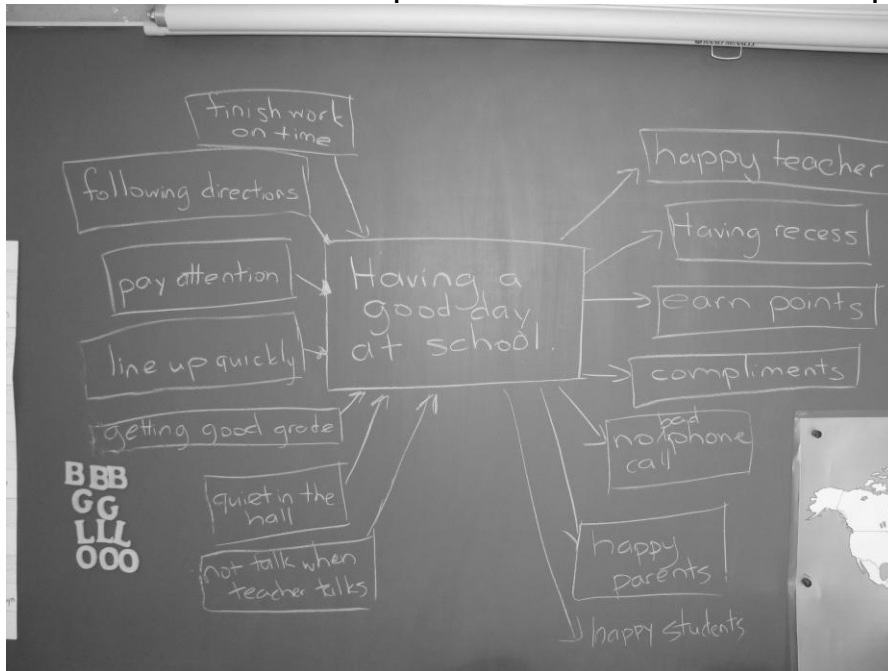 finish work
on time
following directions
pay attention
line up quickly
getting good grade
quiet in the
hall
not talk when
teacher talks
Having a
good day
at school.
happy teacher
Having recess
earn points
compliments
bad
no phone
call
happy
parents
happy students
B BB
G G
LLL
OOO